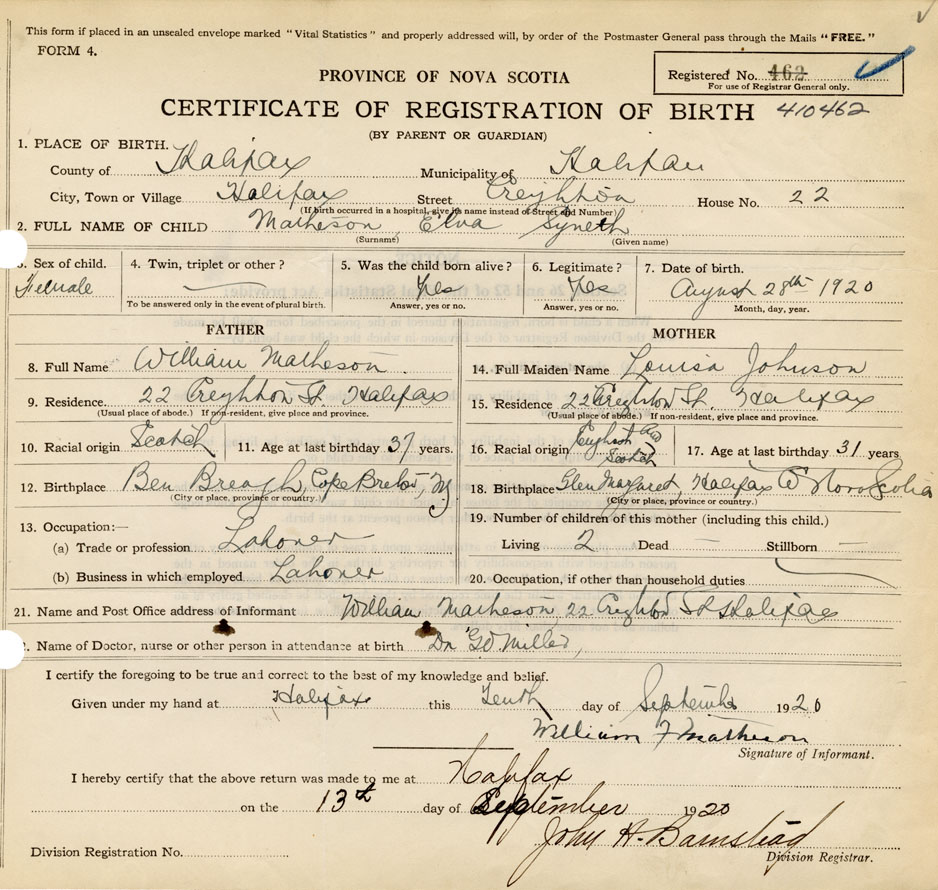 This form if placed in an unsealed envelope marked "Vital Statistics" and properly addressed will, by order of the Postmaster General pass through the Mails "FREE."
FORM 4.
PROVINCE OF NOVA SCOTIA
Registered No. 462
For use of Registrar General only.
CERTIFICATE OF REGISTRATION OF BIRTH 410462
(BY PARENT OR GUARDIAN)
1. PLACE OF BIRTH.
County of Halifax Municipality of Halifax
City, Town or Village Halifax Street Creighton House No. 22
(If birth occurred in a hospital, give its name instead of Street and Number)
2. FULL NAME OF CHILD Matheson, Elva Syneth
(Surname) (Given name)
3. Sex of child. 4. Twin, triplet or other? 5. Was the child born alive? 6. Legitimate? 7. Date of birth.
Female Yes Yes August 28th 1920
To be answered only in the event of plural birth. Answer, yes or no. Answer, yes or no. Month, day, year.
FATHER
8. Full Name William Matheson.
9. Residence. 22 Creyhton St. Halifax
(Usual place of abode.) If non-resident, give place and province.
10. Racial origin Scotch 11. Age at last birthday 37 years.
12. Birthplace Ben Breagh, Cape Breton,
(City or place, province or country.)
13. Occupation:—
(a) Trade or profession Lahoner
(b) Business in which employed Lahoner
MOTHER
14. Full Maiden Name Louisa Johnson
15. Residence 22 Creyhton St. Halifax
(Usual place of abode.) If non-resident, give place and province.
16. Racial origin and Scotch 17. Age at last birthday 31 years
18. Birthplace Glen Margaret, Halifax Co Nova Scotia
(City or place, province or country.)
19. Number of children of this mother (including this child.)
Living 2 Dead — Stillborn —
20. Occupation, if other than household duties
21. Name and Post Office address of Informant William Matheson, 22 Creyhton St Halifax
. Name of Doctor, nurse or other person in attendance at birth Dr. G.D. Miller,
I certify the foregoing to be true and correct to the best of my knowledge and belief.
Given under my hand at Halifax this Tenth day of September 1920
William F Matheson
Signature of Informant.
I hereby certify that the above return was made to me at Halifax
on the 13th day of September 1920
John H. Barnstead
Division Registration No. Division Registrar.